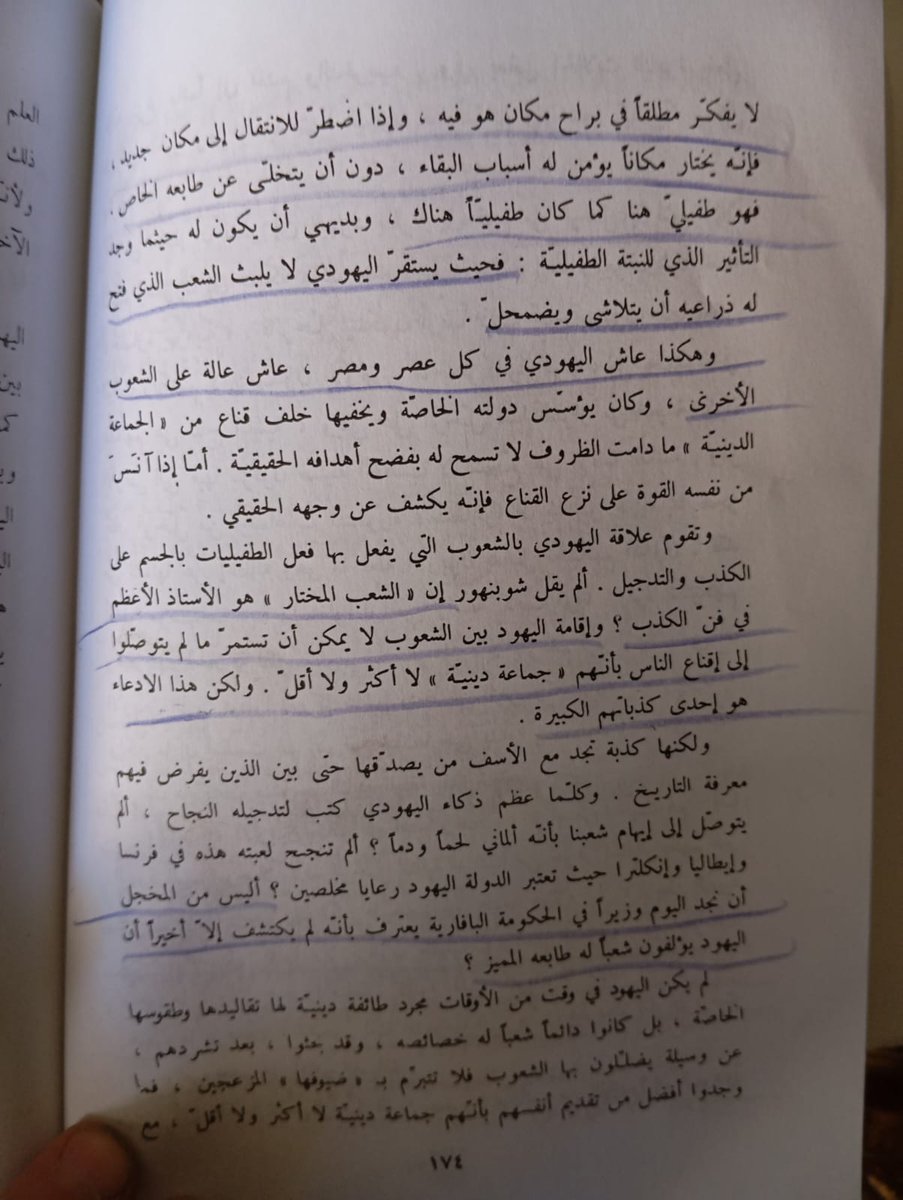 لا يفكّر مطلقاً في براح مكان هو فيه ، وإذا اضطرّ للانتقال إلى مكان جديد ،
فإنّه يختار مكاناً يؤمن له أسباب البقاء ، دون أن يتخلّى عن طابعه الخاص .
فهو طفيليّ هنا كما كان طفيليّاً هناك ، وبديهي أن يكون له حيثما وجد
التأثير الذي للنبتة الطفيليّة : فحيث يستقرّ اليهودي لا يلبث الشعب الذي فتح
له ذراعيه أن يتلاشى ويضمحلّ .
وهكذا عاش اليهودي في كل عصر ومصر ، عاش عالة على الشعوب
الأخرى ، وكان يؤسّس دولته الخاصّة ويخفيها خلف قناع من « الجماعة
الدينيّة » ما دامت الظروف لا تسمح له بفضح أهدافه الحقيقيّة . أمّا إذا آنَسَ
من نفسه القوة على نزع القناع فإنّه يكشف عن وجهه الحقيقي .
وتقوم علاقة اليهودي بالشعوب التي يفعل بها فعل الطفيليات بالجسم على
الكذب والتدجيل . ألم يقل شوبنهور إن « الشعب المختار » هو الأستاذ الأعظم
في فنّ الكذب ؟ وإقامة اليهود بين الشعوب لا يمكن أن تستمرّ ما لم يتوصّلوا
إلى إقناع الناس بأنّهم « جماعة دينيّة » لا أكثر ولا أقلّ . ولكن هذا الادعاء
هو إحدى كذباتهم الكبيرة .
ولكنها كذبة تجد مع الأسف من يصدّقها حتّى بين الذين يفرض فيهم
معرفة التاريخ . وكلّما عظم ذكاء اليهودي كتب لتدجيله النجاح ، ألم
يتوصّل إلى إيهام شعبنا بأنّه ألماني لحماً ودماً ؟ ألم تنجح لعبته هذه في فرنسا
وإيطاليا وإنكلترا حيث تعتبر الدولة اليهود رعايا مخلصين ؟ أليس من المخجل
أن نجد اليوم وزيراً في الحكومة البافارية يعترف بأنّه لم يكتشف إلاّ أخيراً أن
اليهود يؤلفون شعباً له طابعه المميز ؟
لم يكن اليهود في وقت من الأوقات مجرد طائفة دينيّة لها تقاليدها وطقوسها
الخاصّة ، بل كانوا دائماً شعباً له خصائصه ، وقد بحثوا ، بعد تشردهم ،
عن وسيلة يضلّلون بها الشعوب فلا تتبرّم بـ « ضيوفها » المزعجين ، فما
وجدوا أفضل من تقديم أنفسهم بأنّهم جماعة دينيّة لا أكثر ولا أقلّ ، مع
١٧٤
العلم
ذلك